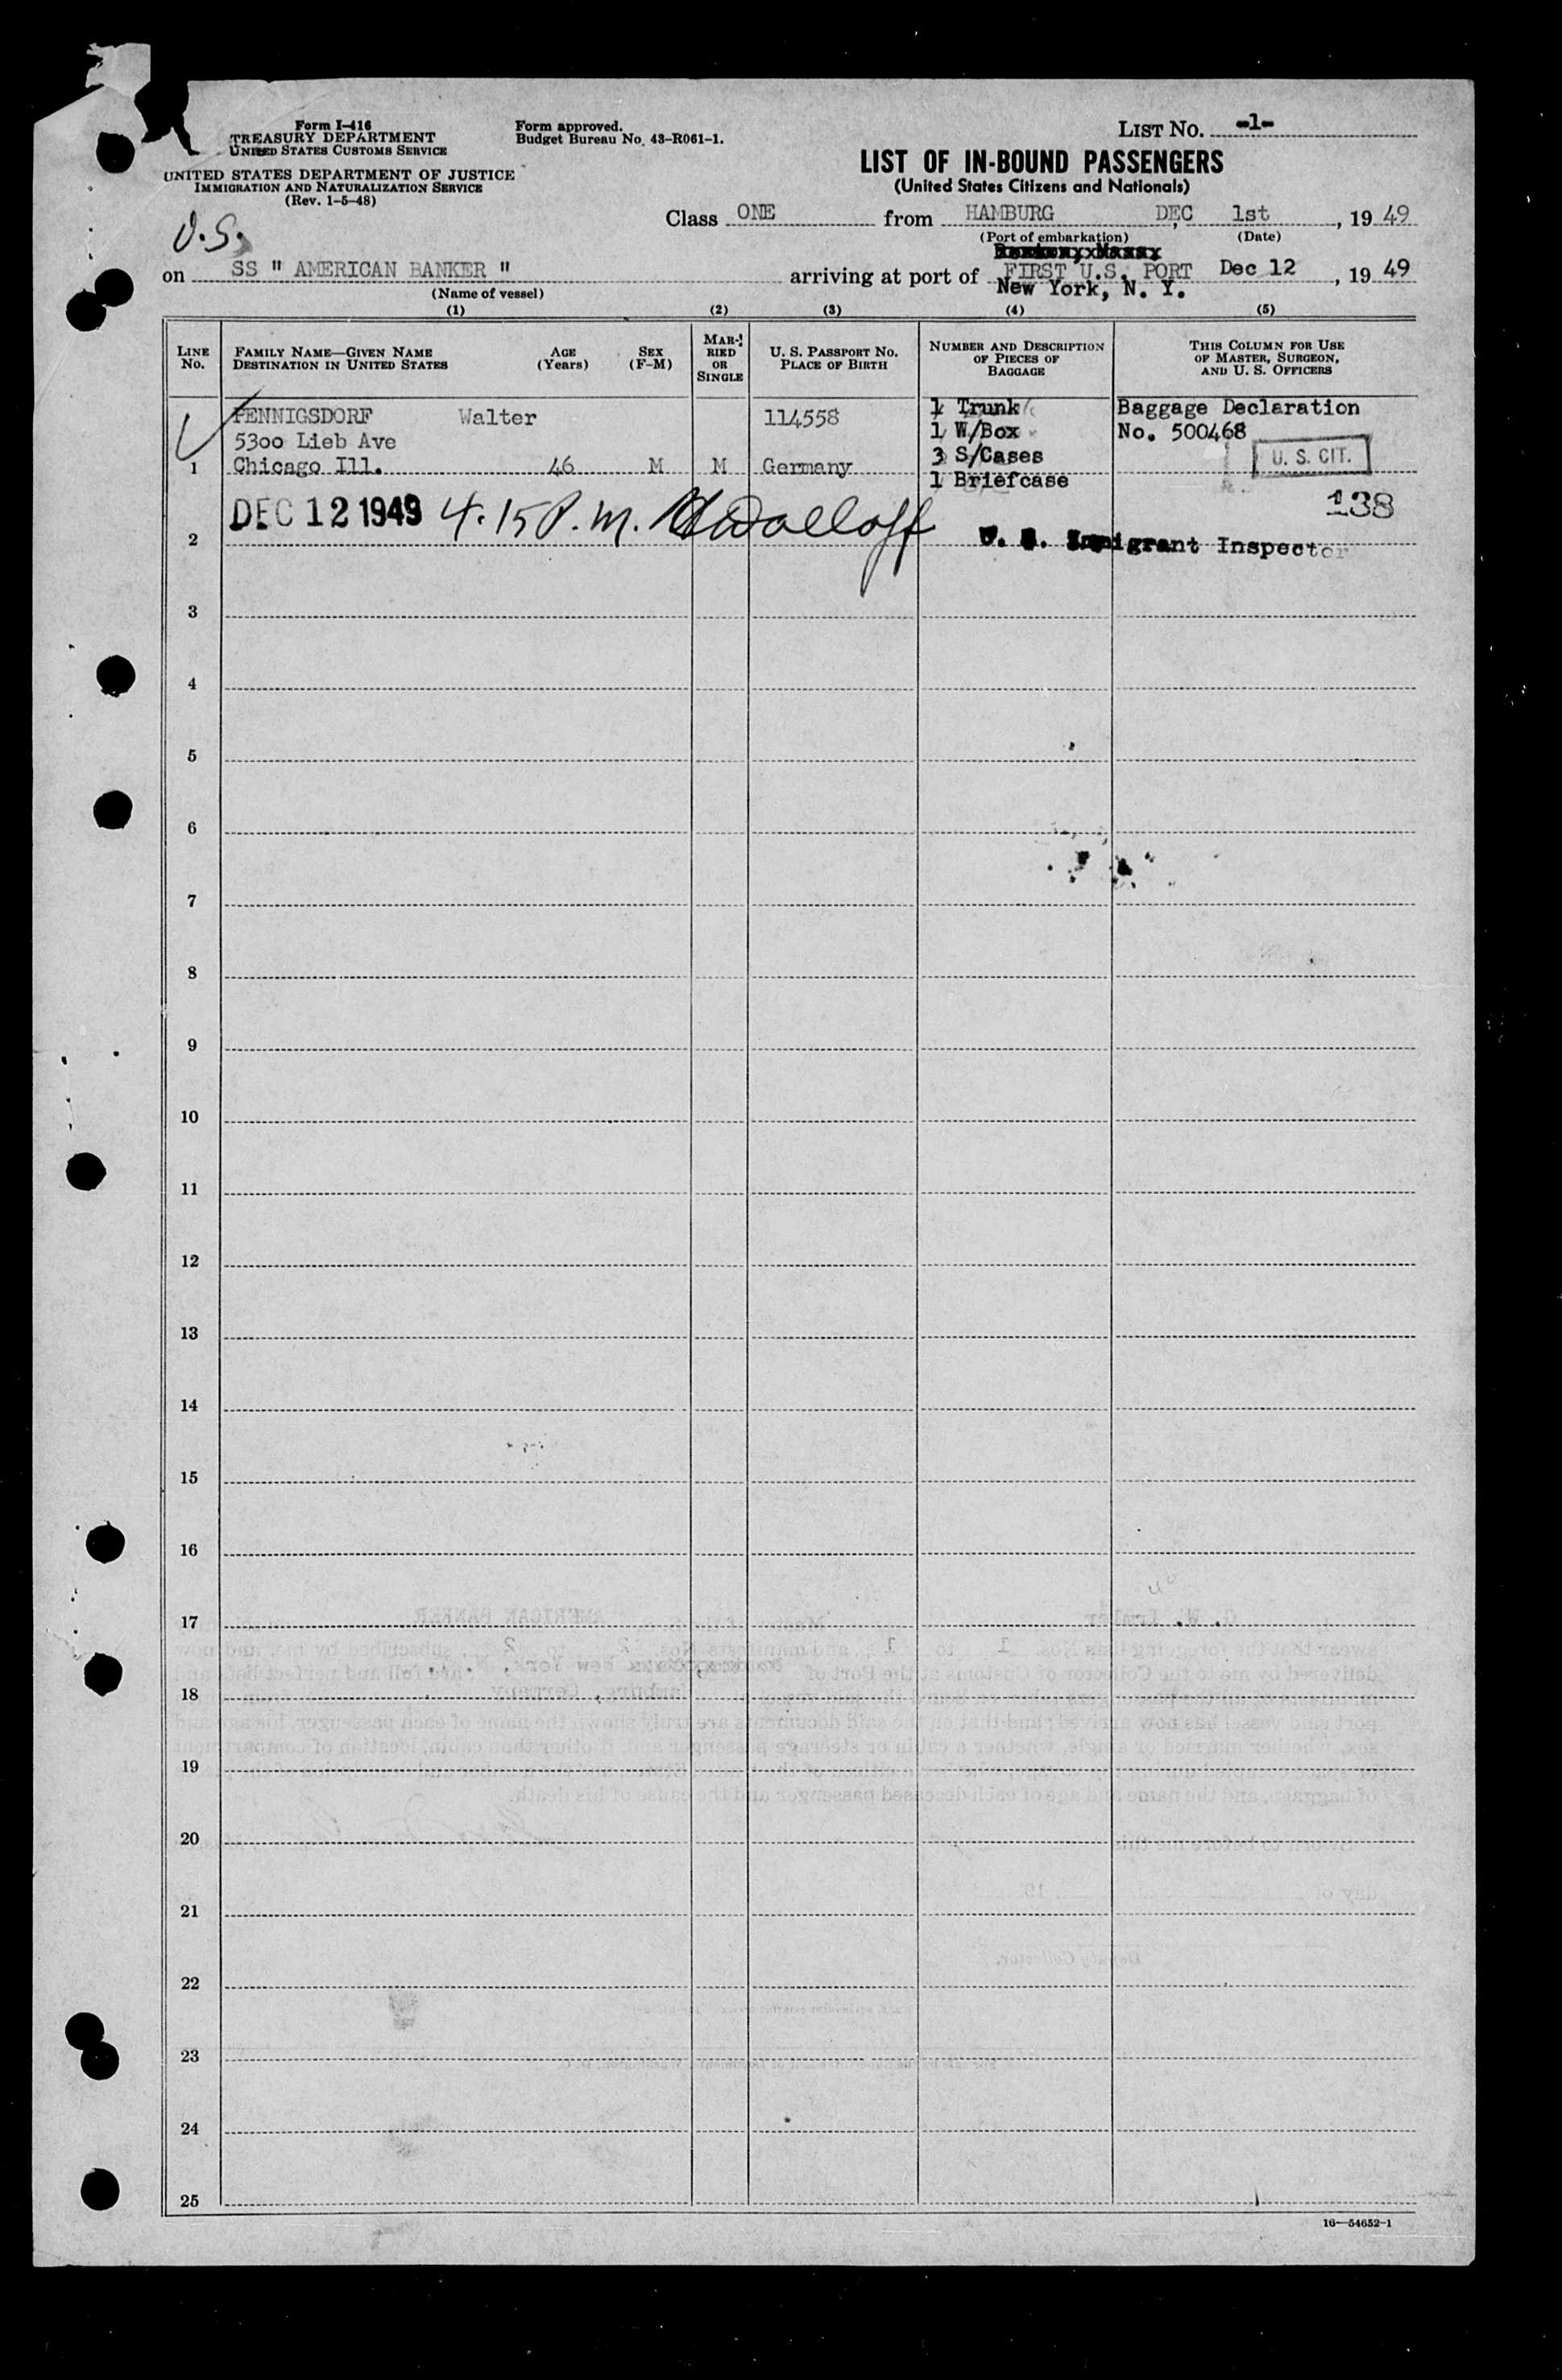 Form I-416
TREASURY DEPARTMENT
UNITED STATES CUSTOMS SERVICE
UNITED STATES DEPARTMENT OF JUSTICE
IMMIGRATION AND NATURALIZATION SERVICE
(Rev. 1-5-48)
Form approved.
Budget Bureau No. 43-R061-1.
LIST No. -1-
LIST OF IN-BOUND PASSENGERS
(United States Citizens and Nationals)
U.S.
Class ONE from HAMBURG DEC, 1st, 19 49
(Port of embarkation) (Date)
on SS " AMERICAN BANKER " arriving at port of FIRST U.S. PORT Dec 12, 19 49
(Name of vessel) New York, N. Y.
(1) (2) (3) (4) (5)
LINE No.
FAMILY NAME—GIVEN NAME
DESTINATION IN UNITED STATES
AGE (Years)
SEX (F-M)
MARRIED OR SINGLE
U. S. PASSPORT NO.
PLACE OF BIRTH
NUMBER AND DESCRIPTION OF PIECES OF BAGGAGE
THIS COLUMN FOR USE OF MASTER, SURGEON, AND U. S. OFFICERS
PENNIGSDORF Walter 114558 1 Trunk Baggage Declaration
5300 Lieb Ave 1 W/Box No. 500468
1 Chicago Ill. 46 M M Germany 3 S/Cases U. S. CIT.
1 Briefcase
138
DEC 12 1949 4.15 P.M.
2 U. S. Immigrant Inspector
3
4
5
6
7
8
9
10
11
12
13
14
15
16
17
18
19
20
21
22
23
24
25
16—54652-1